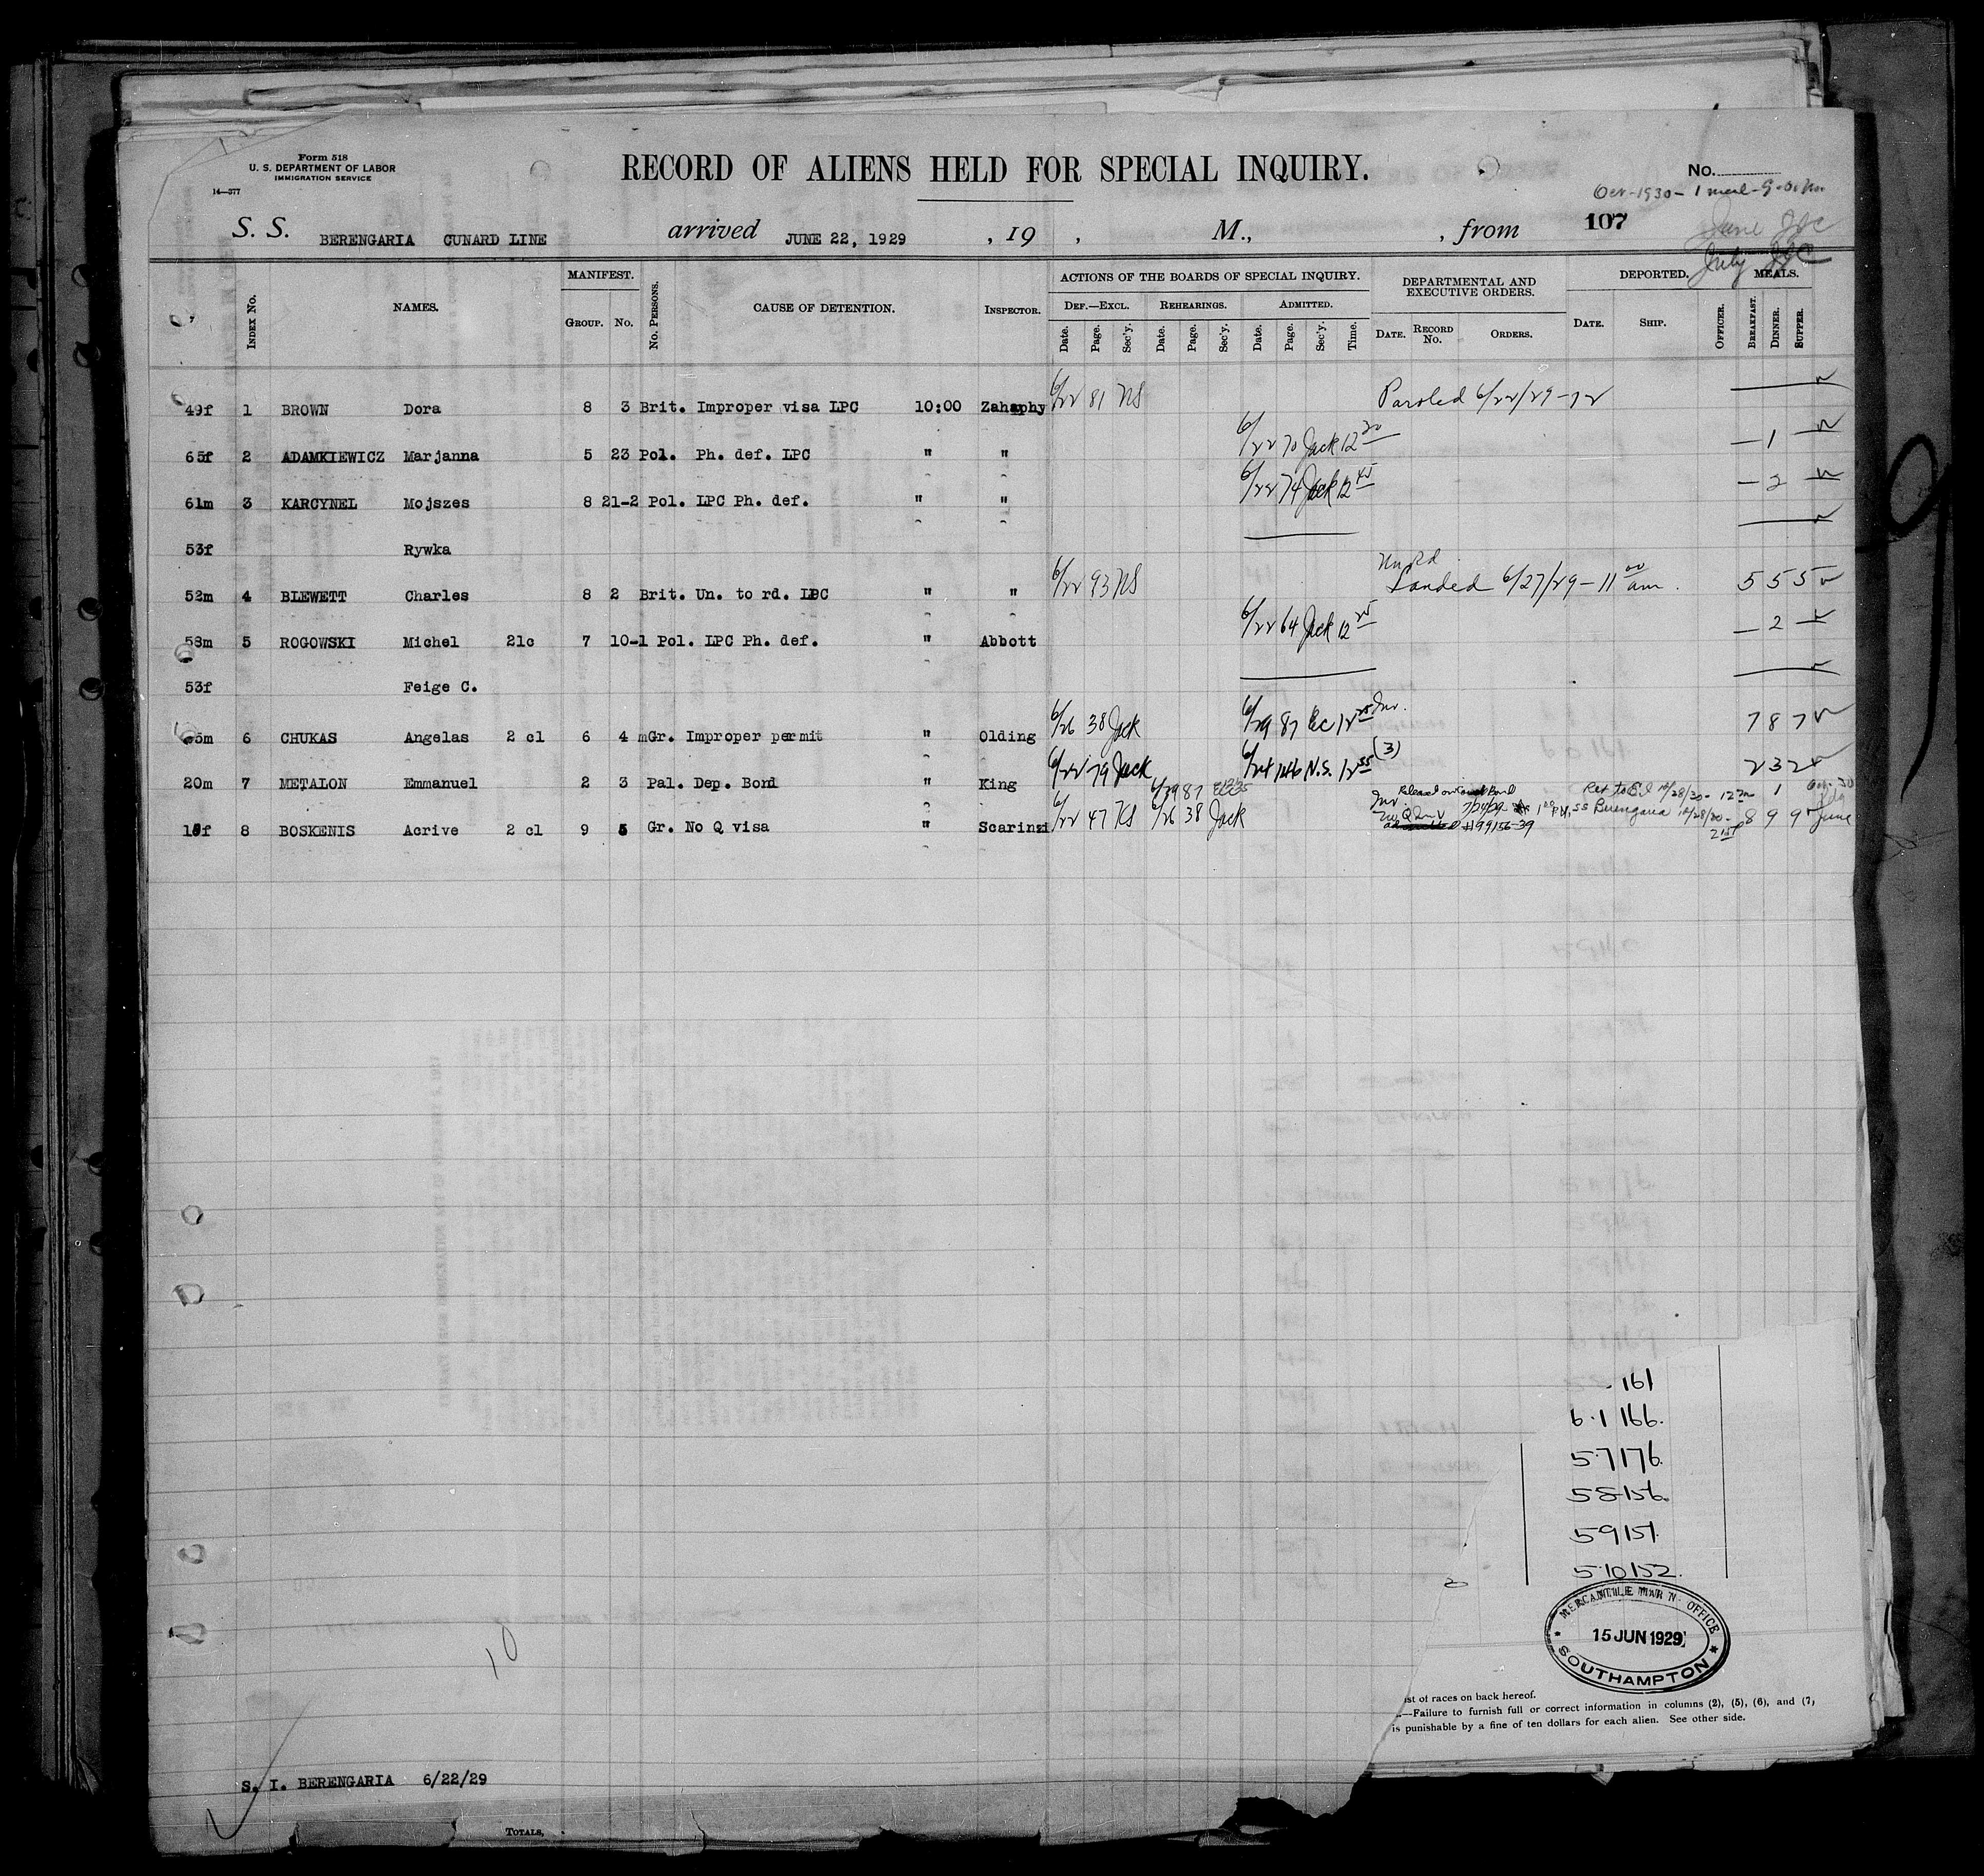 Form 518
U. S. DEPARTMENT OF LABOR
IMMIGRATION SERVICE
14—377
RECORD OF ALIENS HELD FOR SPECIAL INQUIRY.
No.
Oct-1930- 1 meal-
S. S. BERENGARIA CUNARD LINE arrived JUNE 22, 1929 , 19 , M., , from 107
June
July
INDEX No. NAMES. MANIFEST. GROUP. No. No. PERSONS. CAUSE OF DETENTION. INSPECTOR. ACTIONS OF THE BOARDS OF SPECIAL INQUIRY. DEF.—EXCL. REHEARINGS. ADMITTED. DEPARTMENTAL AND EXECUTIVE ORDERS. DEPORTED. MEALS.
Date. Page. Sec'y. Date. Page. Sec'y. Date. Page. Sec'y. Time. DATE. RECORD No. ORDERS. DATE. SHIP. OFFICER. BREAKFAST. DINNER. SUPPER.
49f 1 BROWN Dora 8 3 Brit. Improper visa LPC 10:00 Zahaphy 6/22 81 NS Paroled 6/22/29-
65f 2 ADAMKIEWICZ Marjanna 5 23 Pol. Ph. def. LPC " " 6/22 70 Jack 12 20 — 1 —
61m 3 KARCYNEL Mojszes 8 21-2 Pol. LPC Ph. def. " " 6/22 74 Jack 12 45 — 2 —
53f Rywka
52m 4 BLEWETT Charles 8 2 Brit. Un. to rd. LPC " " 6/22 93 NS Landed 6/27/29-11 00 am. 5 5 5
58m 5 ROGOWSKI Michel 2lc 7 10-1 Pol. LPC Ph. def. " Abbott 6/22 64 Jack 12 25 — 2 —
53f Feige C.
6 CHUKAS Angelas 2 cl 6 4 mGr. Improper permit " Olding 6/26 38 Jack 6/29 87 12 25 7 8 7
20m 7 METALON Emmanuel 2 3 Pal. Dep. Bond " King 6/22 79 Jack 6/24 146 N.S. 12 55 (3) 2 3 2
8 BOSKENIS Acrive 2 cl 9 5 Gr. No Q visa " Scarinzi 6/22 47 NS 6/26 38 Jack 6/29 87 Released on Bond #99156-39 SS Berengaria 8 9 9 June
161
6·1 166.
57176.
58156.
59151.
510152.
MERCANTILE MAR N· OFFICE
15 JUN 1929
SOUTHAMPTON
ist of races on back hereof.
.—Failure to furnish full or correct information in columns (2), (5), (6), and (7,
is punishable by a fine of ten dollars for each alien. See other side.
10
S. I. BERENGARIA 6/22/29
TOTALS,